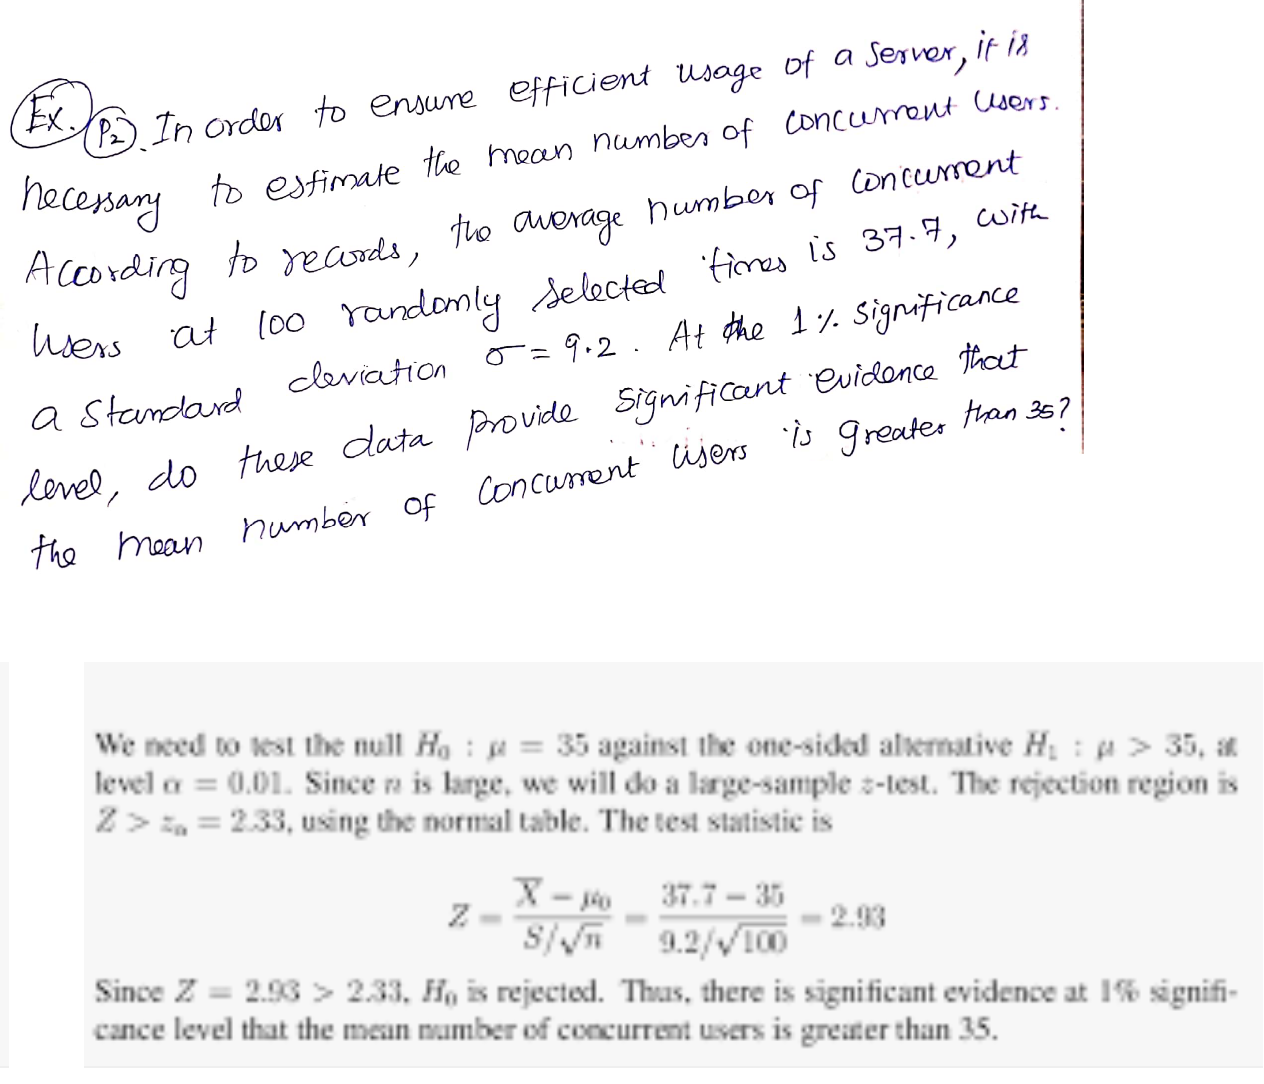 Ex. P2. In order to ensure efficient usage of a server, it is
necessary to estimate the mean number of concurrent users.
According to records, the average number of concurrent
users at 100 randomly selected times is 37.7, with
a standard deviation σ = 9.2. At the 1% significance
level, do these data provide significant evidence that
the mean number of concurrent users is greater than 35?
We need to test the null H₀ : μ = 35 against the one-sided alternative H₁ : μ > 35, at
level α = 0.01. Since n is large, we will do a large-sample z-test. The rejection region is
Z > zα = 2.33, using the normal table. The test statistic is
Z = (X̄ − μ₀)/(S/√n) = (37.7 − 35)/(9.2/√100) = 2.93
Since Z = 2.93 > 2.33, H₀ is rejected. Thus, there is significant evidence at 1% signifi-
cance level that the mean number of concurrent users is greater than 35.